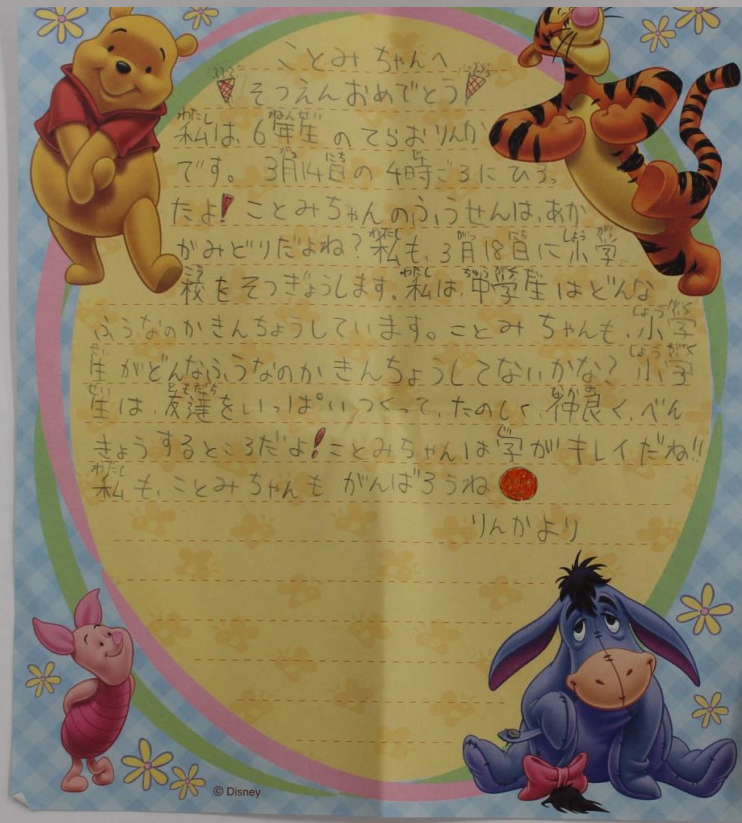 ことみちゃんへ
そつえんおめでとう
私は、6年生のてらおりんか
です。3月14日の4時ごろにひろっ
たよ!ことみちゃんのふうせんは、あか
がみどりだよね?私も、3月18日に小学
校をそつぎょうします。私は、中学生はどんな
ふうなのかきんちょうしています。ことみちゃんも、小学
生がどんなふうなのかきんちょうしてないかな?小学
生は、友達をいっぱいつくって、たのしく、仲良く、べん
きょうするところだよ!ことみちゃんは字がキレイだね!!
私も、ことみちゃんもがんばろうね
りんかより
© Disney